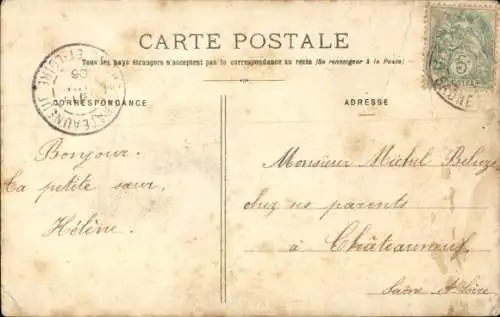 CARTE POSTALE
Tous les pays étrangers n'acceptent pas la correspondance au recto (Se renseigner à la Poste)
CORRESPONDANCE
ADRESSE
ET-LOIRE
06
Bonjour.
Ta petite sœur,
Hélène.
Monsieur Michel
chez ses parents
à Châteauneuf
Saône et Loire